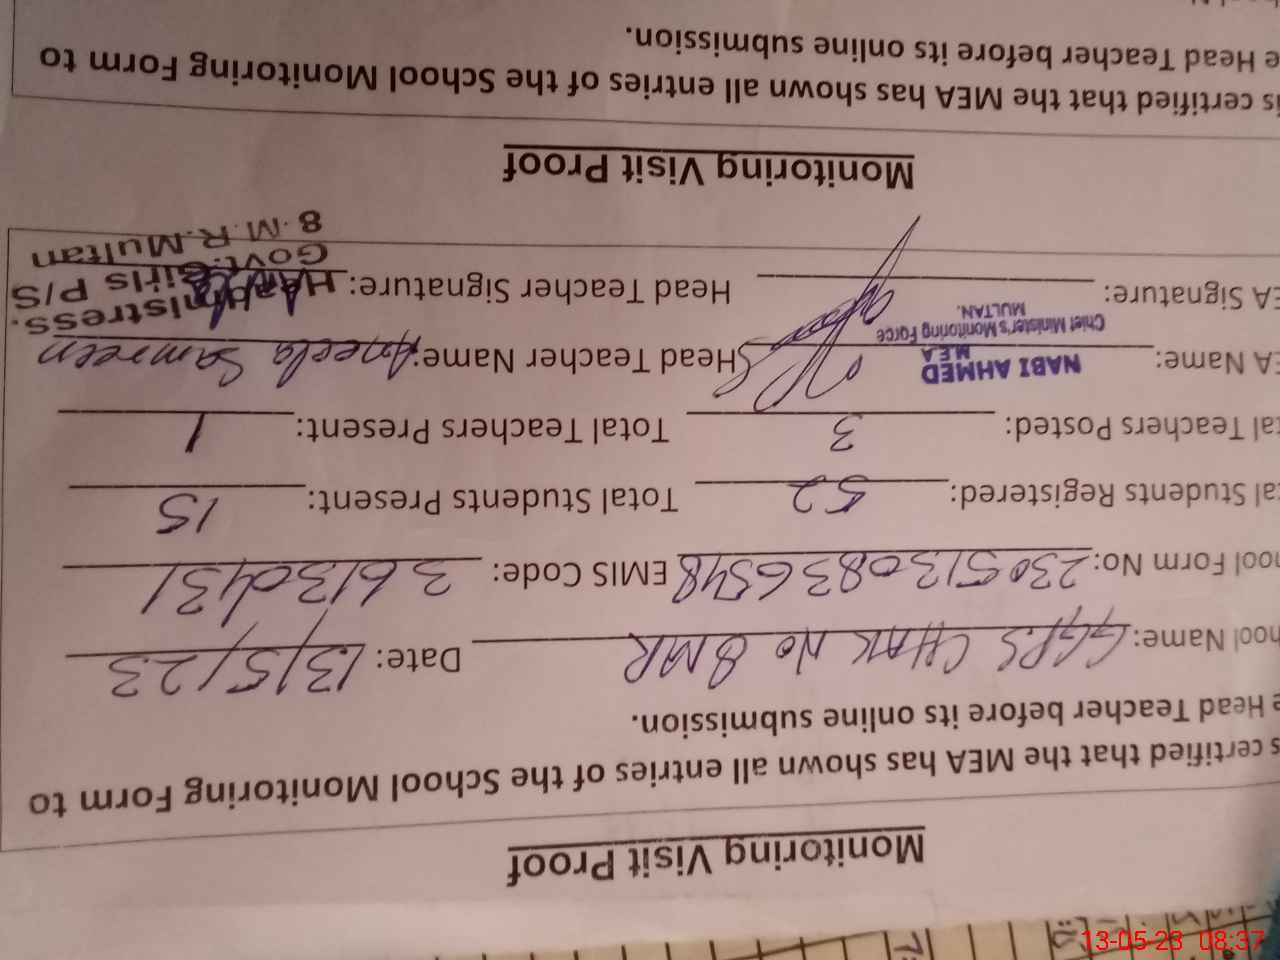 Monitoring Visit Proof
s certified that the MEA has shown all entries of the School Monitoring Form to
e Head Teacher before its online submission.
hool Name: GGPS CHAK No 8MR Date: 13/5/23
hool Form No: 2305130836548 EMIS Code: 36130431
tal Students Registered: 52 Total Students Present: 15
tal Teachers Posted: 3 Total Teachers Present: 1
EA Name: NABI AHMED Head Teacher Name: Aneela Samreen
M E A
Chief Minister's Monitoring Force
MULTAN.
EA Signature: Head Teacher Signature:
Headmistress.
Govt. Girls P/S
8.M.R.Multan
Monitoring Visit Proof
is certified that the MEA has shown all entries of the School Monitoring Form to
e Head Teacher before its online submission.
13-05-23 08:37